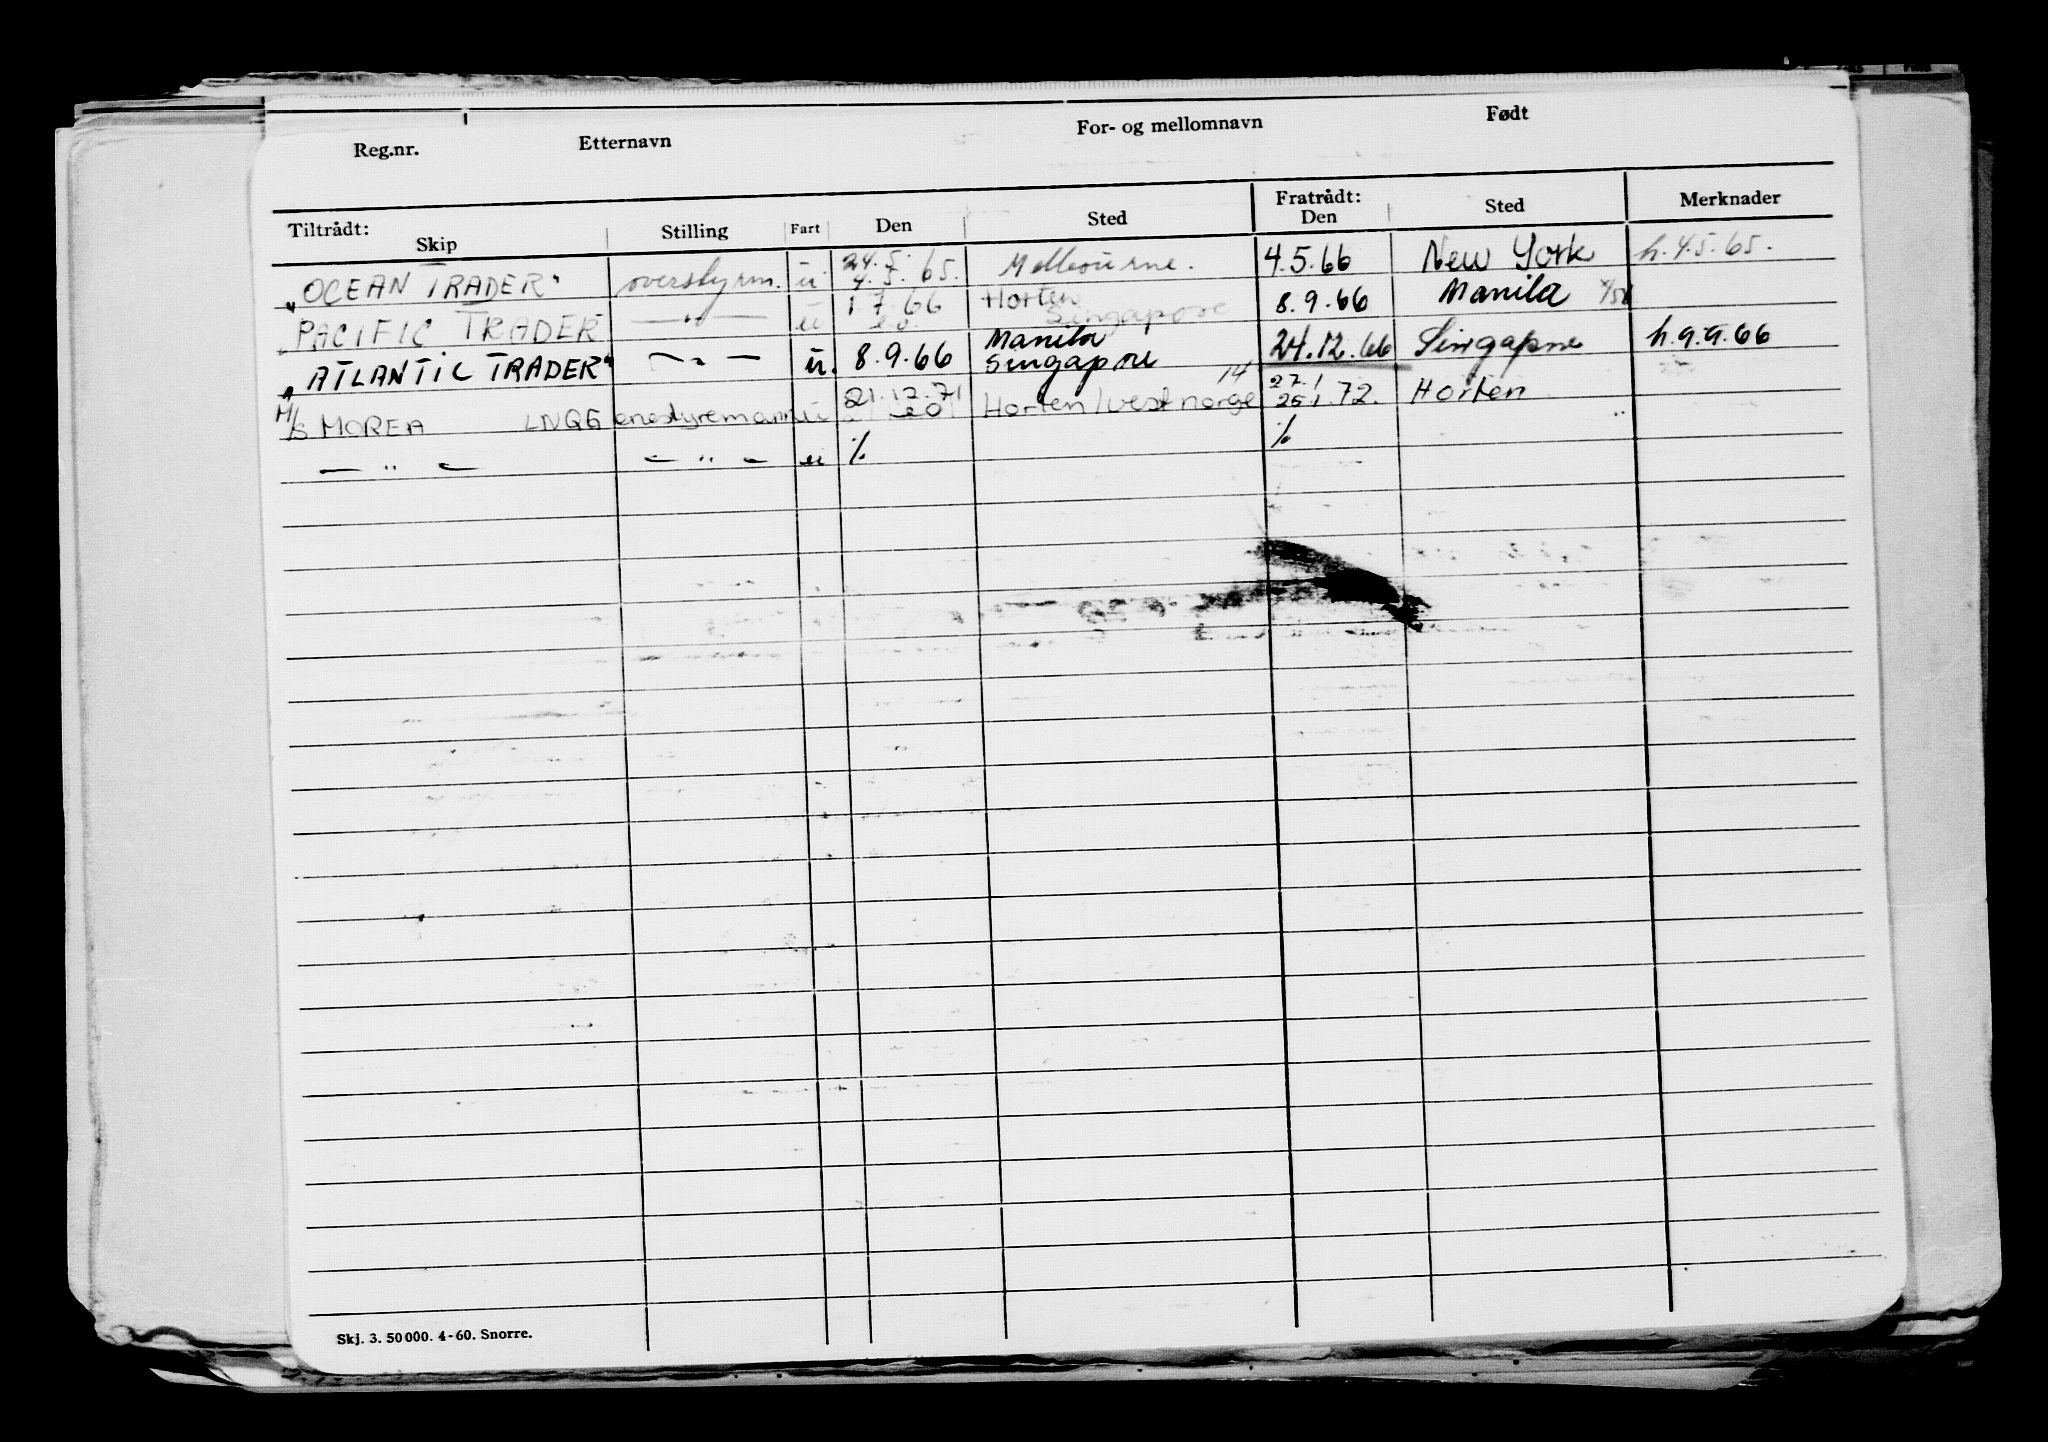 Reg.nr. Etternavn For- og mellomnavn Født
Tiltrådt: Skip Stilling Fart Den Sted Fratrådt: Den Sted Merknader
24.5.
"OCEAN TRADER" overstyrm. ü 4.5.65. Melbourne. 4.5.66 New York h.4.5.65.
1.7.66 Horten
"PACIFIC TRADER — " — ü Singapore 8.9.66 Manila
Manila
"ATLANTIC TRADER" — " — ü. 8.9.66 Singapore 24.12.66 Singapore h.9.9.66
21.12.71 14 27.1
M/S MOREA LNQG enestyremann ü Horten/vest norge 25.1.72. Horten
— " — — " — ü % %
Skj. 3. 50 000. 4-60. Snorre.